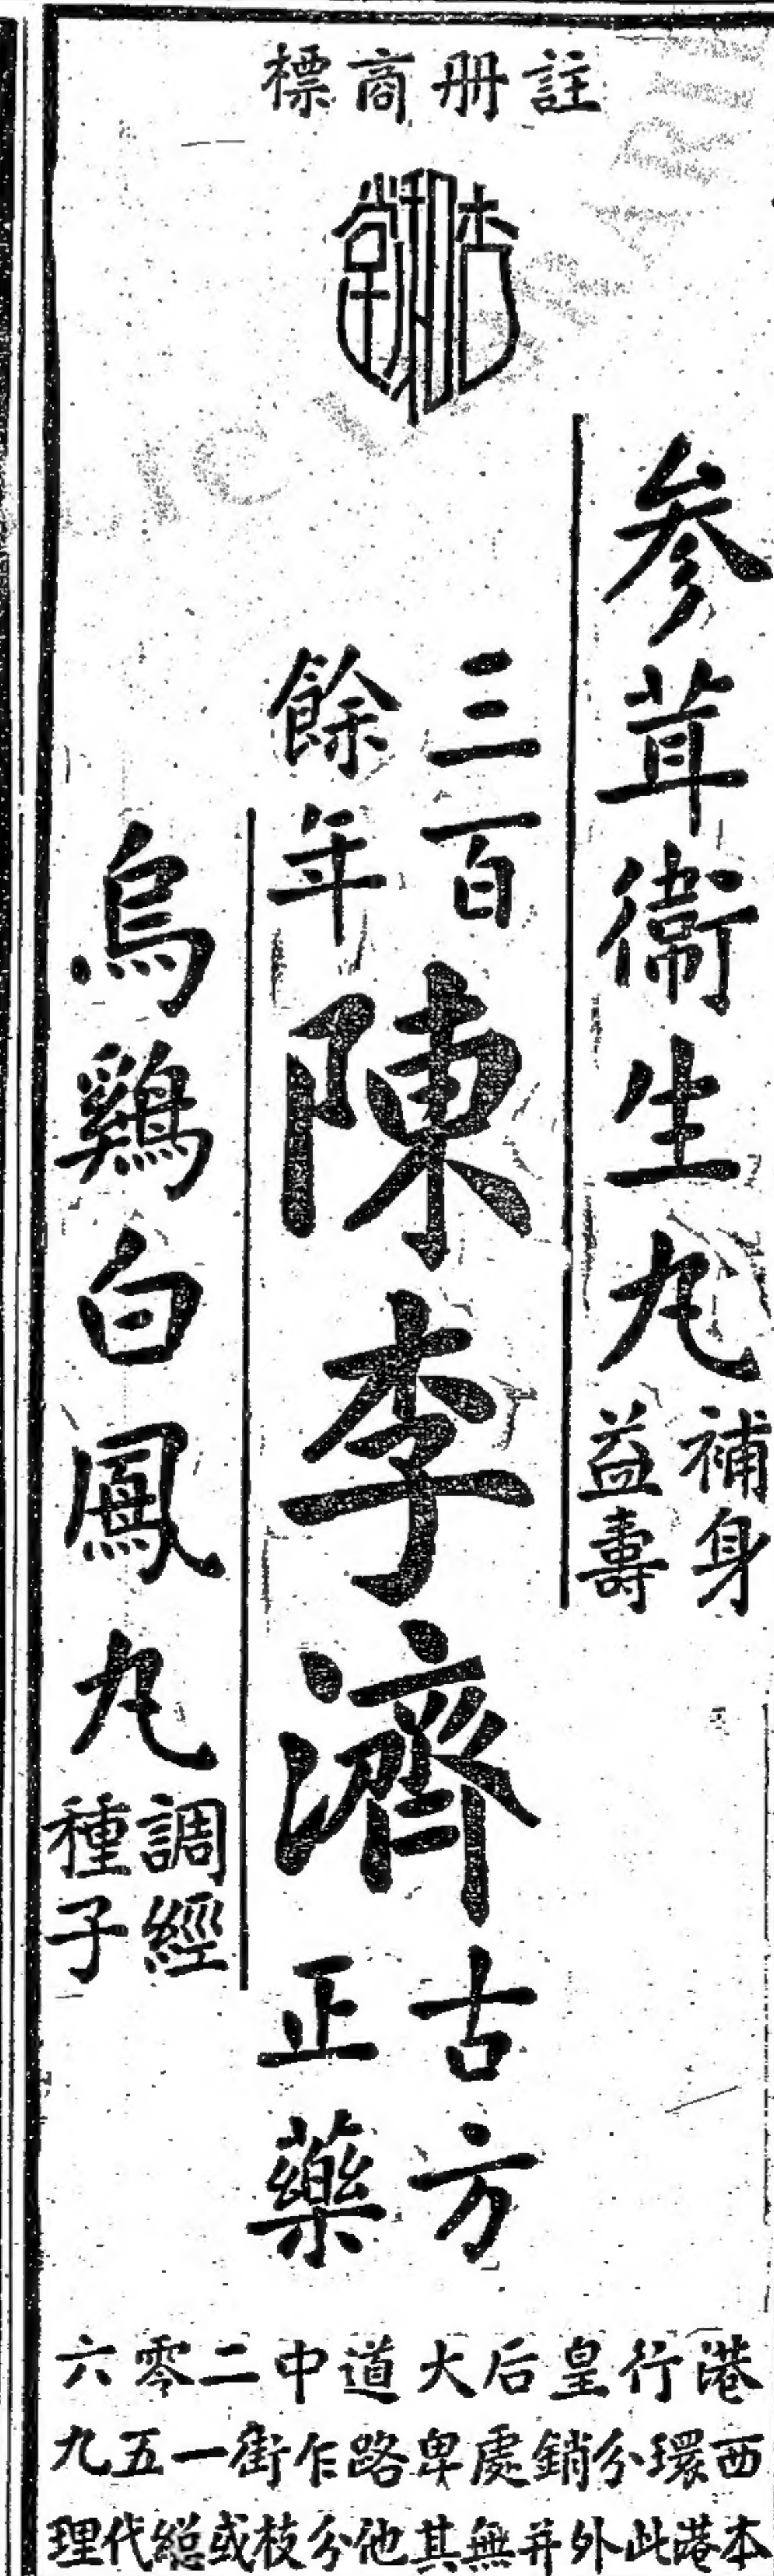 註册商標
杏和堂
參茸衞生丸
補身
益壽
三百
餘年
陳李濟
古方
正藥
烏鷄白鳳丸
調經
種子
港行皇后大道中二零六
西環分銷處卑路乍街一五九
本港此外并無其他分枝或總代理